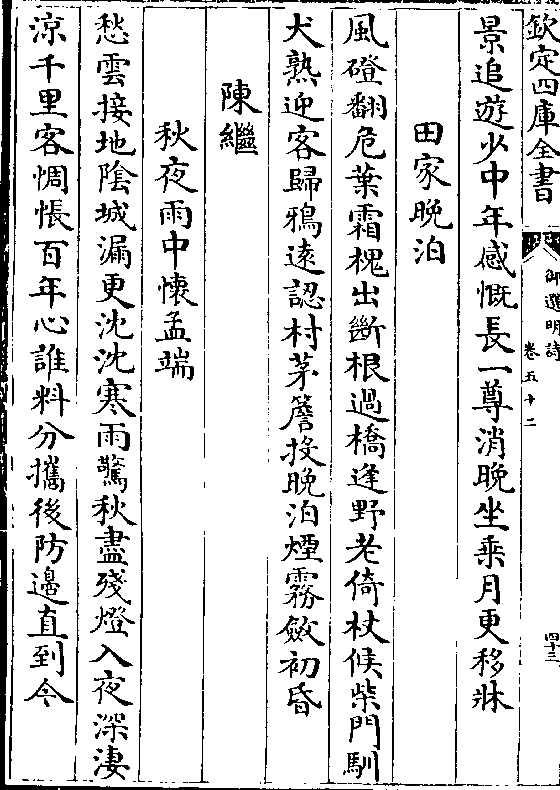 欽定四庫全書
御選明詩
卷五十二
四十三
景追遊少中年感慨長一尊消晚坐乘月更移牀
田家晚泊
風磴翻危葉霜槐出斷根過橋逢野老倚杖候柴門馴
犬熟迎客歸鴉遠認村茅簷投晚泊煙霧斂初昏
陳繼
秋夜雨中懷孟端
愁雲接地陰城漏更沈沈寒雨驚秋盡殘燈入夜深淒
涼千里客惆悵百年心誰料分攜後防邊直到今